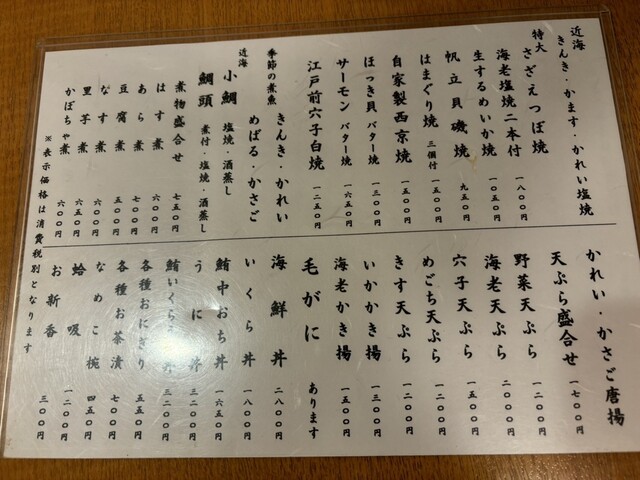 近海 きんき・かます・かれい塩焼
特大 さざえつぼ焼 一八〇〇円
海老塩焼二本付 一〇五〇円
生するめいか焼 一五〇〇円
帆立貝磯焼 九五〇円
はまぐり焼 三個付 一五〇〇円
自家製西京焼 一五〇〇円
ほっき貝バター焼 一三〇〇円
サーモンバター焼 一六五〇円
江戸前穴子白焼 一二五〇円
季節の煮魚 きんき・かれい
めばる・かさご
近海 小鯛 塩焼・酒蒸し
鯛頭 煮付・塩焼・酒蒸し
煮物盛合せ 七五〇円
はす煮 六〇〇円
あら煮 七〇〇円
豆腐煮 五〇〇円
なす煮 六〇〇円
里芋煮 六五〇円
かぼちゃ煮 六〇〇円
※表示価格は消費税別となります
かれい・かさご唐揚
天ぷら盛合せ 一七〇〇円
野菜天ぷら 一二〇〇円
海老天ぷら 二〇〇〇円
穴子天ぷら 一五〇〇円
めごち天ぷら 一二〇〇円
きす天ぷら 一二〇〇円
いかかき揚 一三〇〇円
海老かき揚 一五〇〇円
毛がに あります
海鮮丼 二八〇〇円
いくら丼 一八〇〇円
鮪中おち丼 一六五〇円
うに丼 三二〇〇円
鮪いくら 丼 三二〇〇円
各種おにぎり 五五〇円
各種お茶漬 七〇〇円
なめこ椀 四五〇円
蛤吸 一二〇〇円
お新香 三〇〇円